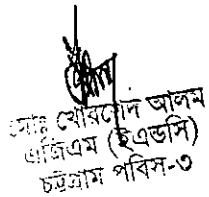 মোঃ খোরশেদ আলম
এজিএম (ইএন্ডসি)
চট্টগ্রাম পবিস-৩